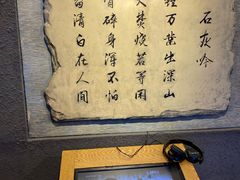 石灰吟
万凿出深山
火焚烧若等闲
骨碎身浑不怕
留清白在人间